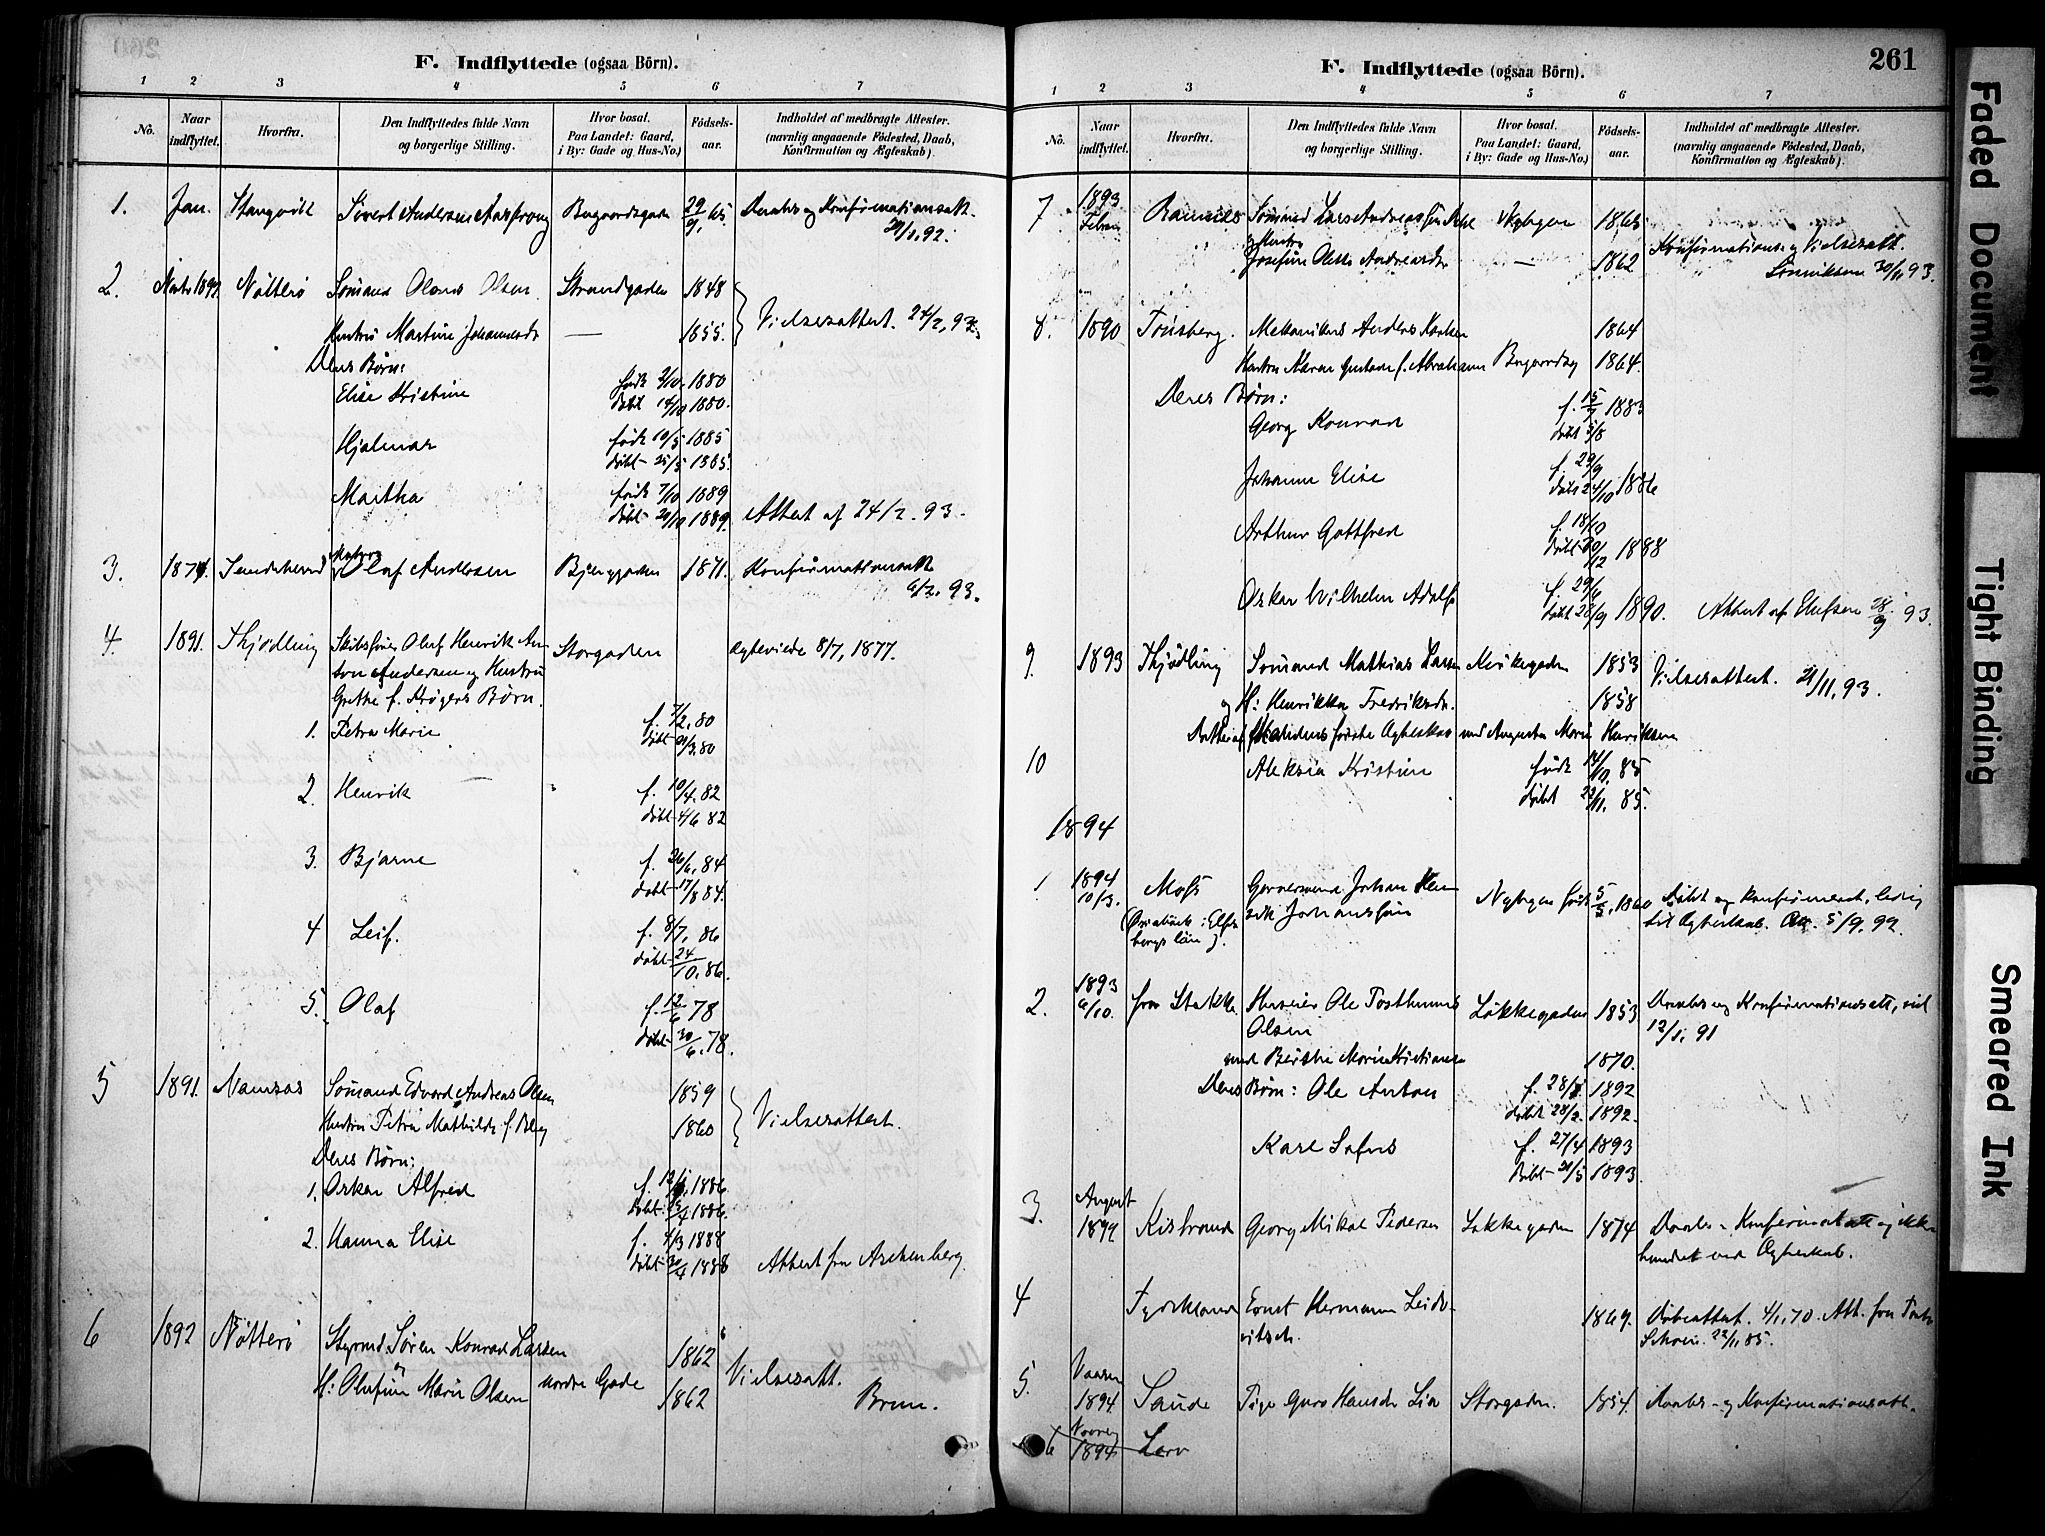 F. Indflyttede (ogsaa Börn).
1 2 3 4 5 6 7
No. Naar indflyttet. Hvorfra. Den Indflyttedes fulde Navn og borgerlige Stilling. Hvor bosat. Paa Landet: Gaard, i By: Gade og Hus-No.) Födsels-aar. Indholdet af medbragte Attester. (navnlig angaaende Födested, Daab, Konfirmation og Ægteskab).
1. Jan. Stangvik Sivert Andersen 29/9. 65. Daabs og Konfirmationsatt.
2. Nötterö Sömand Olsen Strandgaden 1848
Hustru Martine 1855. Vielsesattest. 24/2, 93
Deres Börn:
Elise Kristine födt 2/10 1880
döbt 14/10 1880.
Hjalmar födt 10/5 1885
döbt 25/5 1885.
Martha födt 7/10 1889
döbt 20/10 1889. Attest af 24/2. 93.
3. Olaf Andersen Bjerggaden 1871. Konfirmationsatt
6/2. 93.
4. 1891. Thjödling Skibsförer Oluf Henrik An Storgaden egteviede 8/7, 1877.
ton Andersen og Hustru
Grethe f. Krögers Börn.
1. Petra Marie f. 7/2. 80
döbt 21/3. 80
2. Henrik f. 10/4. 82
döbt 4/6 82
3. Bjarne f. 26/6. 84
döbt 17/8 84.
4 Leif. f. 8/7. 86
döbt 24/10. 86.
5. Olaf f. 12/6 78
döbt 30/6. 78.
5 1891. Namsos Sömand Edvard Andreas Olsen 1859
Hustru Petra Mathilde f. Berg 1860 Vielsesattest.
Deres Börn:
1. Oskar Alfred f. 1886.
döbt 1886.
2. Hanna Elise f. 4/3 1888
döbt 1888 Attest fra Aschenberg
6 1892 Nötterö Styrmd Sören Konrad Larsen 1862
H: Olufine Marie Olsen Nordre Gade 1862 Vielsesatt.
Brun.
F. Indflyttede (ogsaa Börn).
261
1 2 3 4 5 6 7
No. Naar indflyttet. Hvorfra. Den Indflyttedes fulde Navn og borgerlige Stilling. Hvor bosat. Paa Landet: Gaard, i By: Gade og Hus-No.) Födsels-aar. Indholdet af medbragte Attester. (navnlig angaaende Födested, Daab, Konfirmation og Ægteskab).
7 1893 Ramnes Sömand Lars Andreas Nybyen
Februar og Hustru
Josefine 1862 Konfirmations og Vielsesatt.
30/11 93.
8. 1890 Tönsberg. Mekanikus Anders Karlsen 1864
Hustru Karen f. Abrahamsen 1864.
Deres Börn:
Georg Konrad f. 15/7 1883
döbt 5/8
Johanne Elise f. 29/9
döbt 24/10 1886
Arthur Gottfred f. 18/10
döbt 30/12 1888
Oskar Wilhelm Adolf f. 29/6
döbt 28/9 1890. Attest af Ellefsen 93.
9. 1893 Thjödling Sömand Mathias Larsen Kirkegaden 1853 Vielsesattest. 21/11, 93.
og H: Henrikka Fredriksdr. 1858
Datter af Mandens förste Egteskab med Augusta Marie Henriksen
10 Aleksia Kristine födt 14/10. 85
döbt 22/11. 85.
1894
1 1894 Moss Johan Hen
10/3. rik Johansson Nybyen födt 5/5. 1860 Döbt og konfirmeret, ledig
til Egteskab. Att. 5/9. 92.
2. 1893
6/10. fra Stokke Huseier Ole Posthumus Lökkegaden 1853 Daabs og Konfirmationsatt, vid
Olsen 12/1. 91
med Berthe Marie Kristiansen 1870.
Deres Börn: Ole Anton f. 28/1 1892
döbt 28/2. 1892.
Karl Sofus f. 27/4 1893
döbt 21/5 1893.
3. August
1894 Kistrand Georg Mikal Pedersen Lökkegaden 1874 Daabs- Konfirmat.att og ikke
bundet ved Egteskab.
4 Tydskland Ernst Hermann 1869. Döbeattest. 4/1, 70. Att. fra
85.
5. Vaaren
1894 Sande Pige Guro Hansdr Lia Storgaden. 1854. Daabs- og Konfirmationsatt.
6 1894 Larv
Faded Document
Tight Binding
Smeared Ink